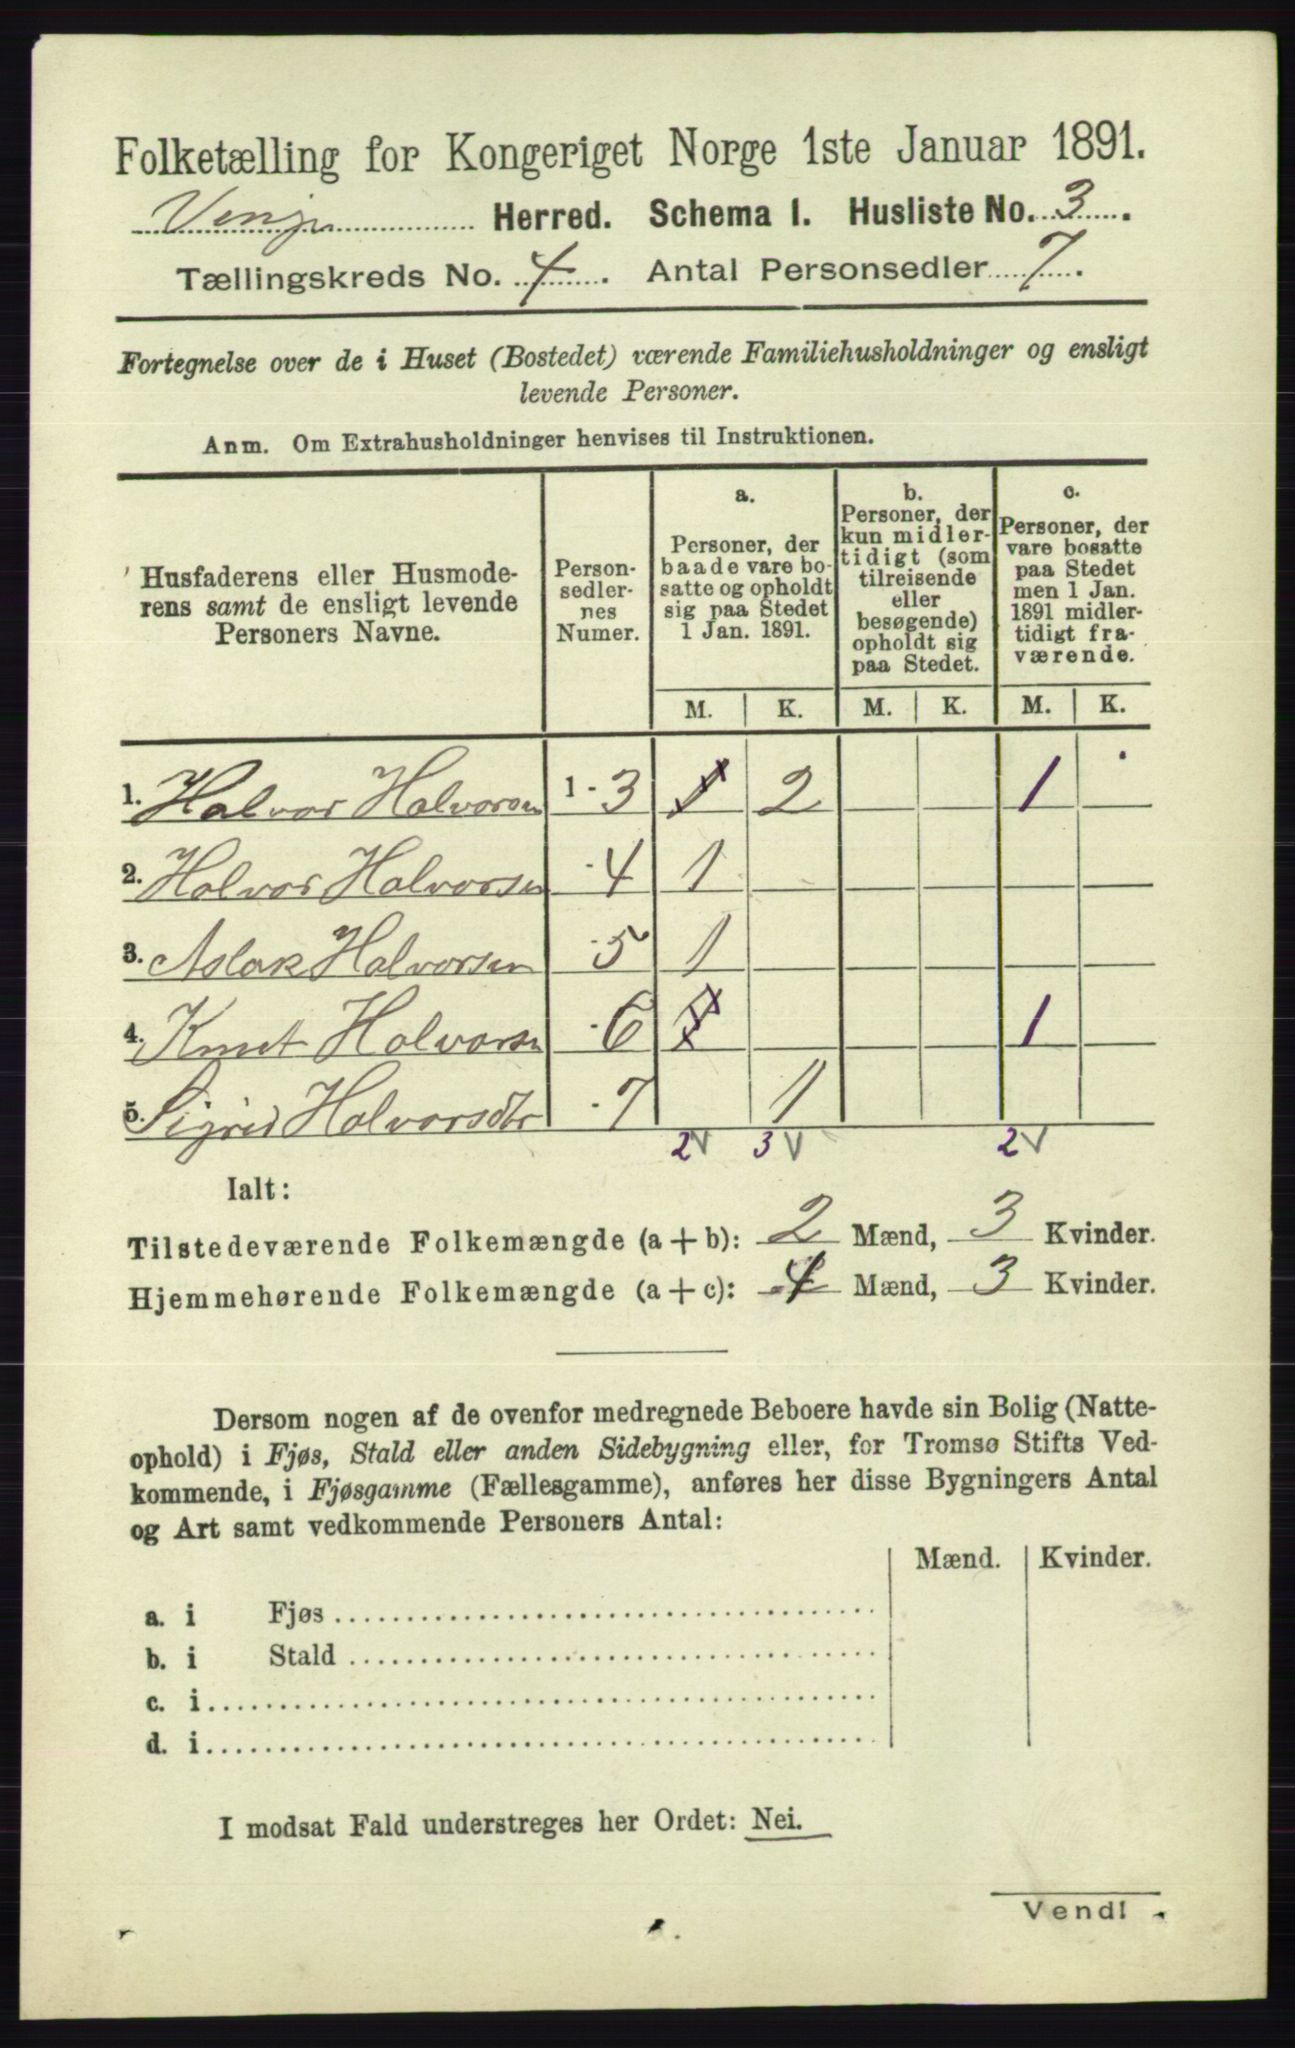 Folketælling for Kongeriget Norge 1ste Januar 1891.
Vinje Herred. Schema I. Husliste No. 3.
Tællingskreds No. 4. Antal Personsedler 7.
Fortegnelse over de i Huset (Bostedet) værende Familiehusholdninger og ensligt
levende Personer.
Anm. Om Extrahusholdninger henvises til Instruktionen.
Husfaderens eller Husmode-
rens samt de ensligt levende
Personers Navne.
Person-
sedler-
nes
Numer.
a.
Personer, der
baade vare bo-
satte og opholdt
sig paa Stedet
1 Jan. 1891.
b.
Personer, der
kun midler-
tidigt (som
tilreisende
eller
besøgende)
opholdt sig
paa Stedet.
c.
Personer, der
vare bosatte
paa Stedet
men 1 Jan.
1891 midler-
tidigt fra-
værende.
M. K. M. K. M. K.
1. Halvor Halvorsen 1-3 1 2 1
2. Halvor Halvorsen -4 1
3. Aslak Halvorsen -5 1
4. Knut Halvorsen -6 1 1
5. Sigrid Halvorsdtr -7 1
2 3 2
Ialt:
Tilstedeværende Folkemængde (a + b): 2 Mænd, 3 Kvinder.
Hjemmehørende Folkemængde (a + c): 4 Mænd, 3 Kvinder.
Dersom nogen af de ovenfor medregnede Beboere havde sin Bolig (Natte-
ophold) i Fjøs, Stald eller anden Sidebygning eller, for Tromsø Stifts Ved-
kommende, i Fjøsgamme (Fællesgamme), anføres her disse Bygningers Antal
og Art samt vedkommende Personers Antal:
Mænd. Kvinder.
a. i Fjøs
b. i Stald
c. i
d. i
I modsat Fald understreges her Ordet: Nei.
Vend!